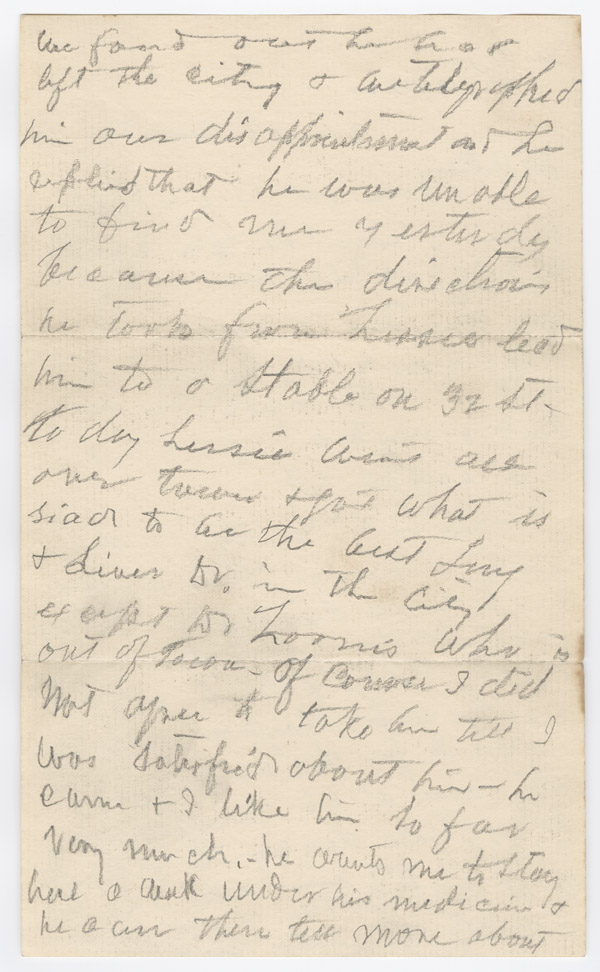 we found out he has
left the city & we telegraphed
him our disappointment and he
replied that he was unable
to find me yesterday
because the directions
he took from Lessie lead
him to a Stable on 32 St -
to day Lessie went all
over town & got what is
siad to be the best Lung
& Liver Dr. in the City
except Dr Loomis who is
out of town - of course I did
not agree to take him till I
was satisfied about him - he
came & I like him so far
very much. - he wants me to stay
here a week under his medicine &
he can then tell more about